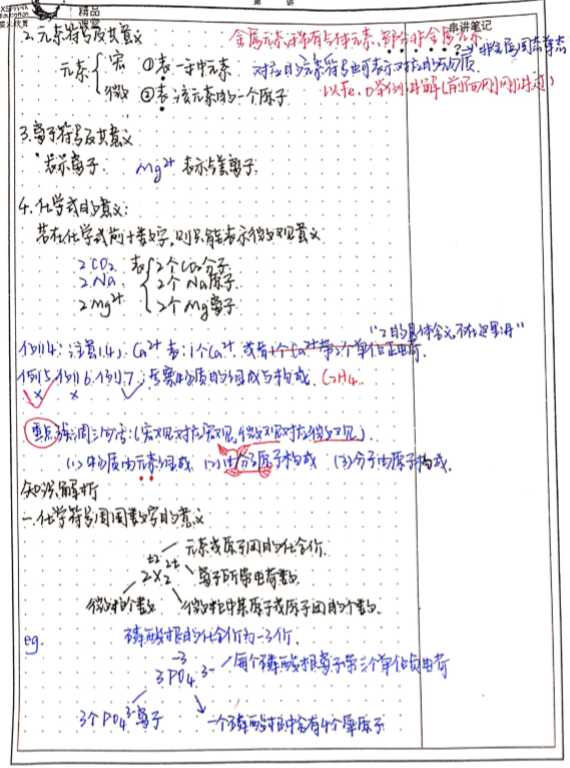 精品
课堂
第 讲
串讲笔记
2.元素符号及其意义
金属元素、稀有气体元素、部分非金属元素
→非金属固态单质
元素 宏 ①表一种元素 对应的元素符号也可表示对应的物质
微 ②表该元素的一个原子 以Fe、O举例讲解(前面刚刚讲过)
3.离子符号及其意义
表示离子. Mg²⁺ 表示镁离子.
4.化学式的意义:
若在化学式前+数字,则只能表示微观意义
2CO₂ 表 2个CO₂分子
2Na 2个Na原子
2Mg²⁺ 2个Mg离子
"2的具体含义,不在这里讲"
例4:注意(4), Ca²⁺表:1个Ca²⁺, 或者1个Ca²⁺带2个单位正电荷.
例5.例6.例7:主要物质的组成与构成. C₂H₄
重点强调三句话:(宏观对应宏观,微观对应微观)
(1)物质由元素组成 (2)由分子原子构成 (3)分子由原子构成.
知识解析
一.化学符号周围数字的意义
元素或原子团的化合价.
±2 2±
2X₂ 离子所带电荷数.
微粒个数 微粒中某原子或原子团的个数.
eg. 磷酸根的化合价为-3价.
-3 每个磷酸根离子带三个单位负电荷
3PO₄³⁻
3个PO₄³⁻离子 一个磷酸根中含有4个氧原子